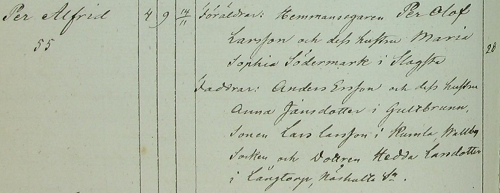 Per Alfrid 4 9 14/11 Föräldrar: Hemmansegaren Per Olof
55 Larsson och dess hustru Maria
Sophia Södermark i Slagsta 28
Faddrar: Anders Ersson och dess hustru
Anna Jansdotter i Gultbrunn,
Sonen Lars Larsson i Rumla, Wallby
Socken och Dottren Hedda Larsdotter
i Långtorp, Härkulla Sn.